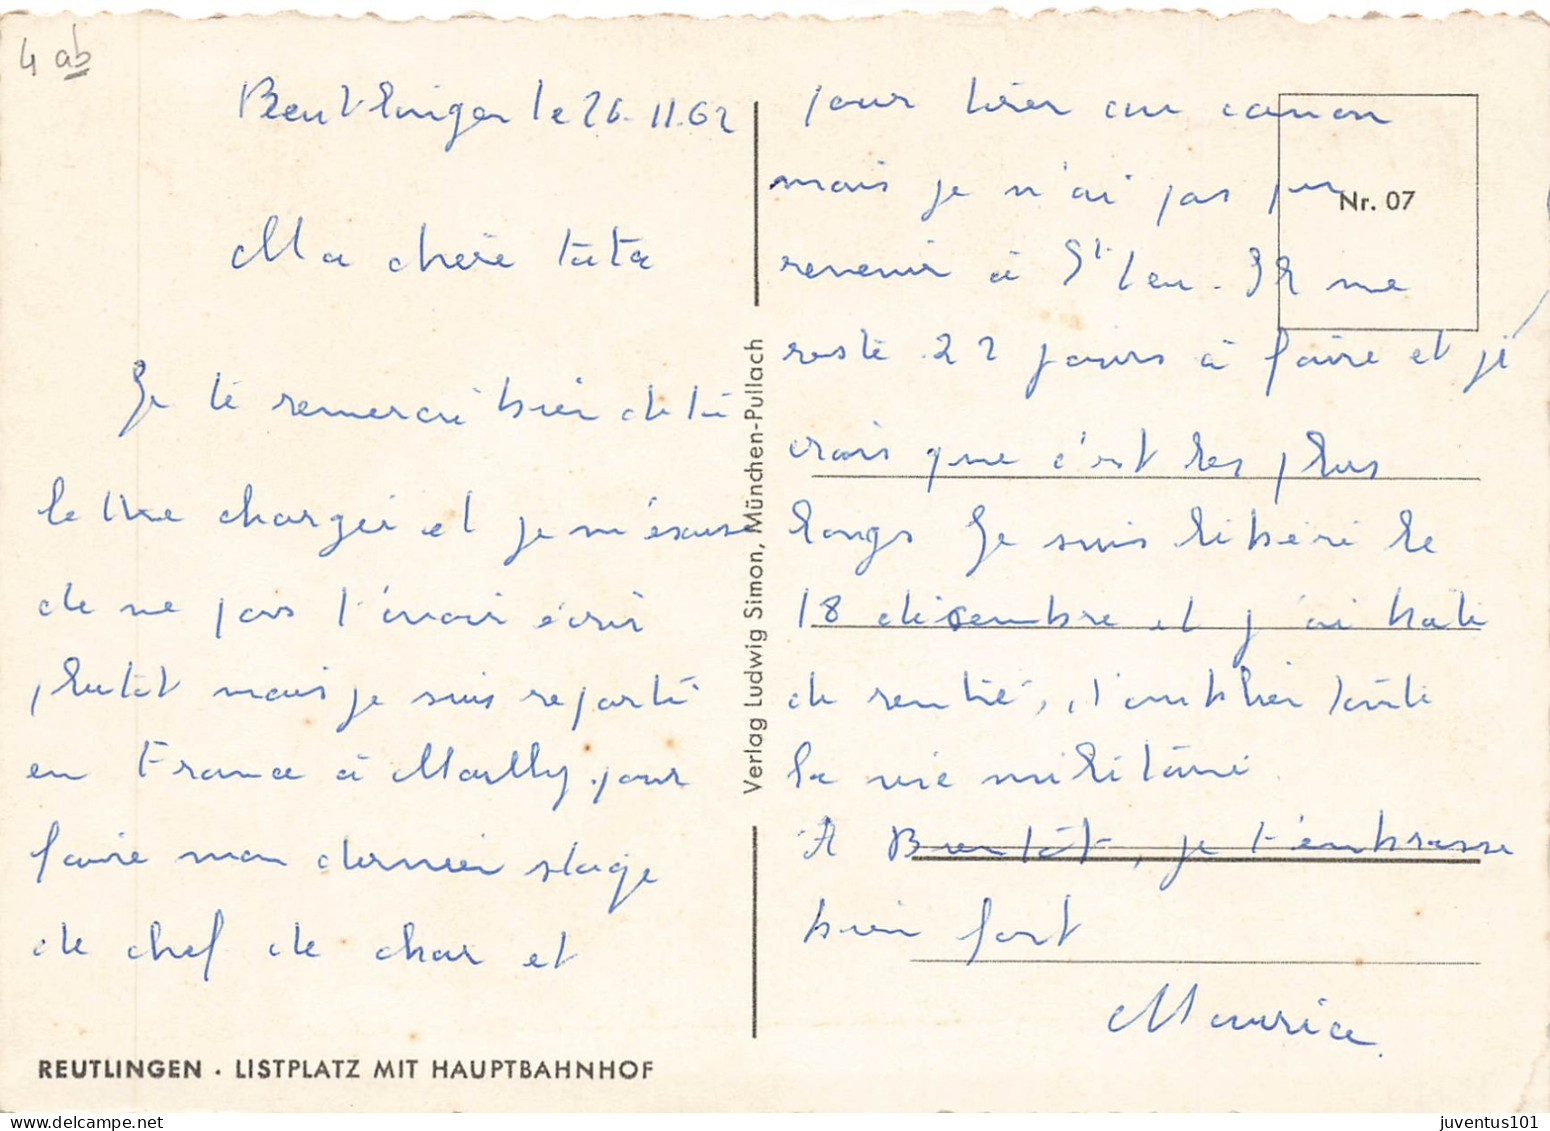 4 ab
Reutlingen le 26-11-62
Ma chère tata
Je te remercie bien de ta
lettre chargée et je m'excuse
de ne pas t'avoir écrit
plutôt mais je suis reparti
en France à Mailly pour
faire mon dernier stage
de chef de char et
REUTLINGEN · LISTPLATZ MIT HAUPTBAHNHOF
Verlag Ludwig Simon, München-Pullach
Nr. 07
pour tirer au canon
mais je n'ai pas pu
revenir à St Leu. Il me
reste 22 jours à faire et je
crois que c'est les plus
longs Je suis libéré le
18 décembre et j'ai hate
de rentré, d'oublier toute
la vie militaire.
A Bientôt, je t'embrasse
bien fort
Maurice.
juventus101